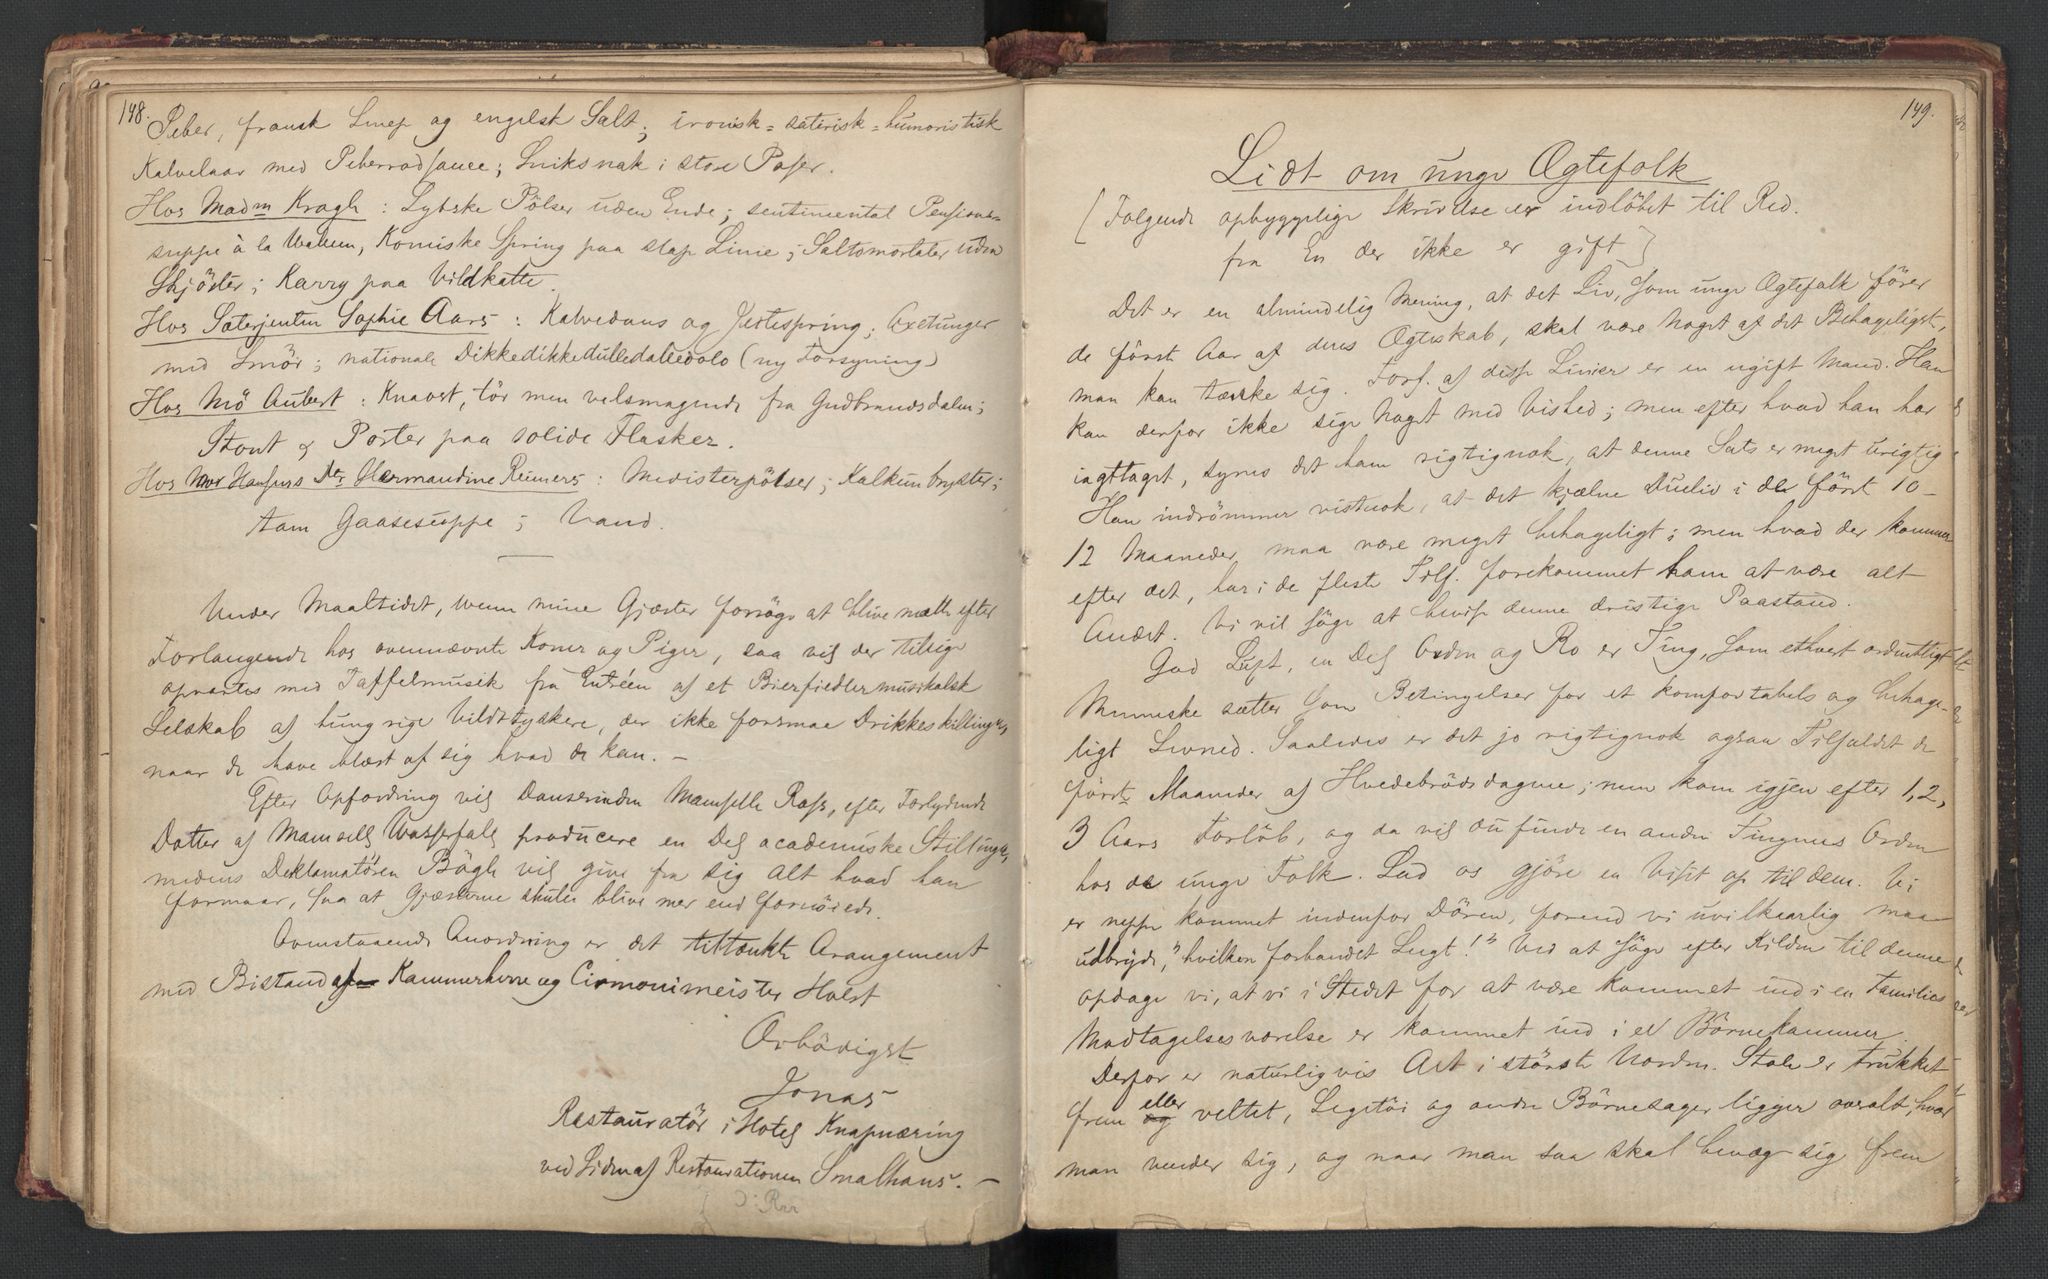 148.
Peber, fransk Sinep og engelsk Salt; ironisk-satirisk-humoristisk
Kalvelaar med Peberrodsauce; Sniksnak i store Poser.
Hos Madm Kragh: Lybske Pölser uden Ende; sentimental Pensions-
suppe à la Komiske Spring paa slap Linie; Saltomortaler uden
Skjöder; Karry paa Vildkatte.
Hos Sæterjenten Sophie Aars: Kalvedans og Jentespring; Oxetunger
med Smör; nationale Dikkedikkedulledalledolo (ny Forsyning)
Hos Mö Aubert: Knaost, tör men velsmagende fra Gudbrandsdalen;
Stout & Porter paa solide Flasker.
Hos Mor Hansens Dtr Hermandine Reimers: Medisterpölser; Kalkunbryster;
tam Gaasesuppe; Vand.
Under Maaltidet, naar mine Gjæster forsöge at blive mætte efter
Forlangende hos ovennævnte Koner og Piger, saa vil der tillige
opvartes med Taffelmusik fra Entréen af et Bierfiedlermusikalsk
Selskab af hungrige Vildttydskere, der ikke forsmaae Drikkeskillinger,
naar de have blæst af sig hvad de kan. –
Efter Opfordring vil Danserinden Mamselle Ross, efter Forlydende
Datter af Mamsell Wasserfall producere en Del academiske Stillinger,
medens Deklamatören Bögh vil give fra sig alt hvad han
formaar, saa at Gjæsterne skulle blive mer end fornöiede.
Ovenstaaende Anordning er det tiltænkte Arangement
med Bistand af Kammerherre og Ceremonimeister Holst
Ærbödigst
Jonas
Restauratör i Hotel Knapnæring
ved Siden af Restaurationen Smalhans. –
149.
Lidt om unge Ægtefolk
[Følgende opbyggelige Skrivelse er indlöbet til Red.
fra En der ikke er gift]
Det er en almindelig Mening, at det Liv, som unge Ægtefolk förer
de förste Aar af deres Ægteskab, skal være noget af det Behageligste,
man kan tænke sig. Forf. af disse Linier er en ugift Mand. Han
kan derfor ikke sige noget med Vished; men efter hvad han har
iagttaget, synes det ham rigtignok, at denne Sats er meget urigtig.
Han indrömmer vistnok, at det kjælne Dueliv i de förste 10–
12 Maaneder, maa være meget behageligt; men hvad der kommer
efter det, har i de fleste Tilf. forekommet ham at være alt
Andet. Vi vil söge at bevise denne dristige Paastand.
God Luft, en Del Orden og Ro er Ting, som ethvert ordentligt
Menneske sætter som Betingelser for et komfortabelt og behage-
ligt Levned. Saaledes er det jo rigtignok ogsaa Tilfældet de
förste Maaneder af Hvedebrödsdagene; men kom igjen efter 1, 2,
3 Aars Forlöb, og da vil du finde en anden Tingenes Orden
hos de unge Folk. Lad os gjöre en Visit op til dem. Vi
er neppe kommet indenfor Dören, forend vi uvilkaarlig maa
udbryde, "hvilken forbandet Lugt!" Ved at söge efter Kilden til denne
opdage vi, at vi i Stedet for at være kommet ind i en Familiens
Modtagelsesværelse er kommet ind i et Börnekammer
Derfor er naturligvis Alt i störste Uorden. Stole er trukket
frem eller veltet, Legetöi og andre Börnesager ligger overalt, hvor
man vender sig, og naar man saa skal bevæge sig frem